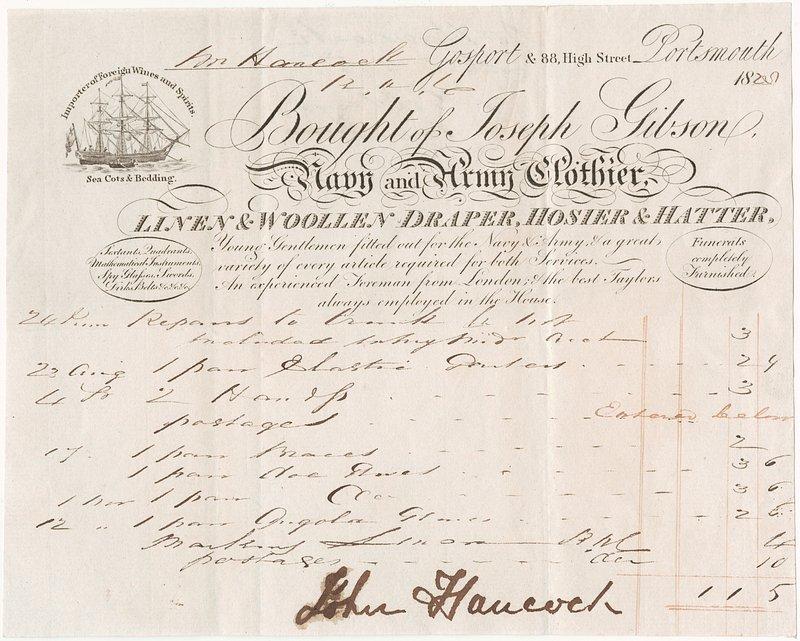 Mr Hancock Gosport & 88, High Street Portsmouth
182
Importer of Foreign Wines and Spirits.
Sea Cots & Bedding.
Bought of Joseph Gibson,
Navy and Army Clothier,
LINEN & WOOLLEN DRAPER, HOSIER & HATTER,
Sextants, Quadrants,
Mathematical Instruments,
Spy Glasses, Swords,
Dirks, Belts &c. &c. &c.
Young Gentlemen fitted out for the Navy & Army, & a great
variety of every article required for both Services.
An experienced Foreman from London, & the best Taylors
always employed in the House.
Funerals
completely
Furnished.
24 Repairs to Trunk
included 3
23 Aug 1 pair Elastic 2 9
4 2 3
postages Entered below
17 1 pair Braces 2
1 pair doe Gloves 3 6
1 Nov 1 pair Do 3 6
12 " 1 pair Angola Gloves 2 6
Marking Linen 4
postages do 10
1 1 5
John Hancock